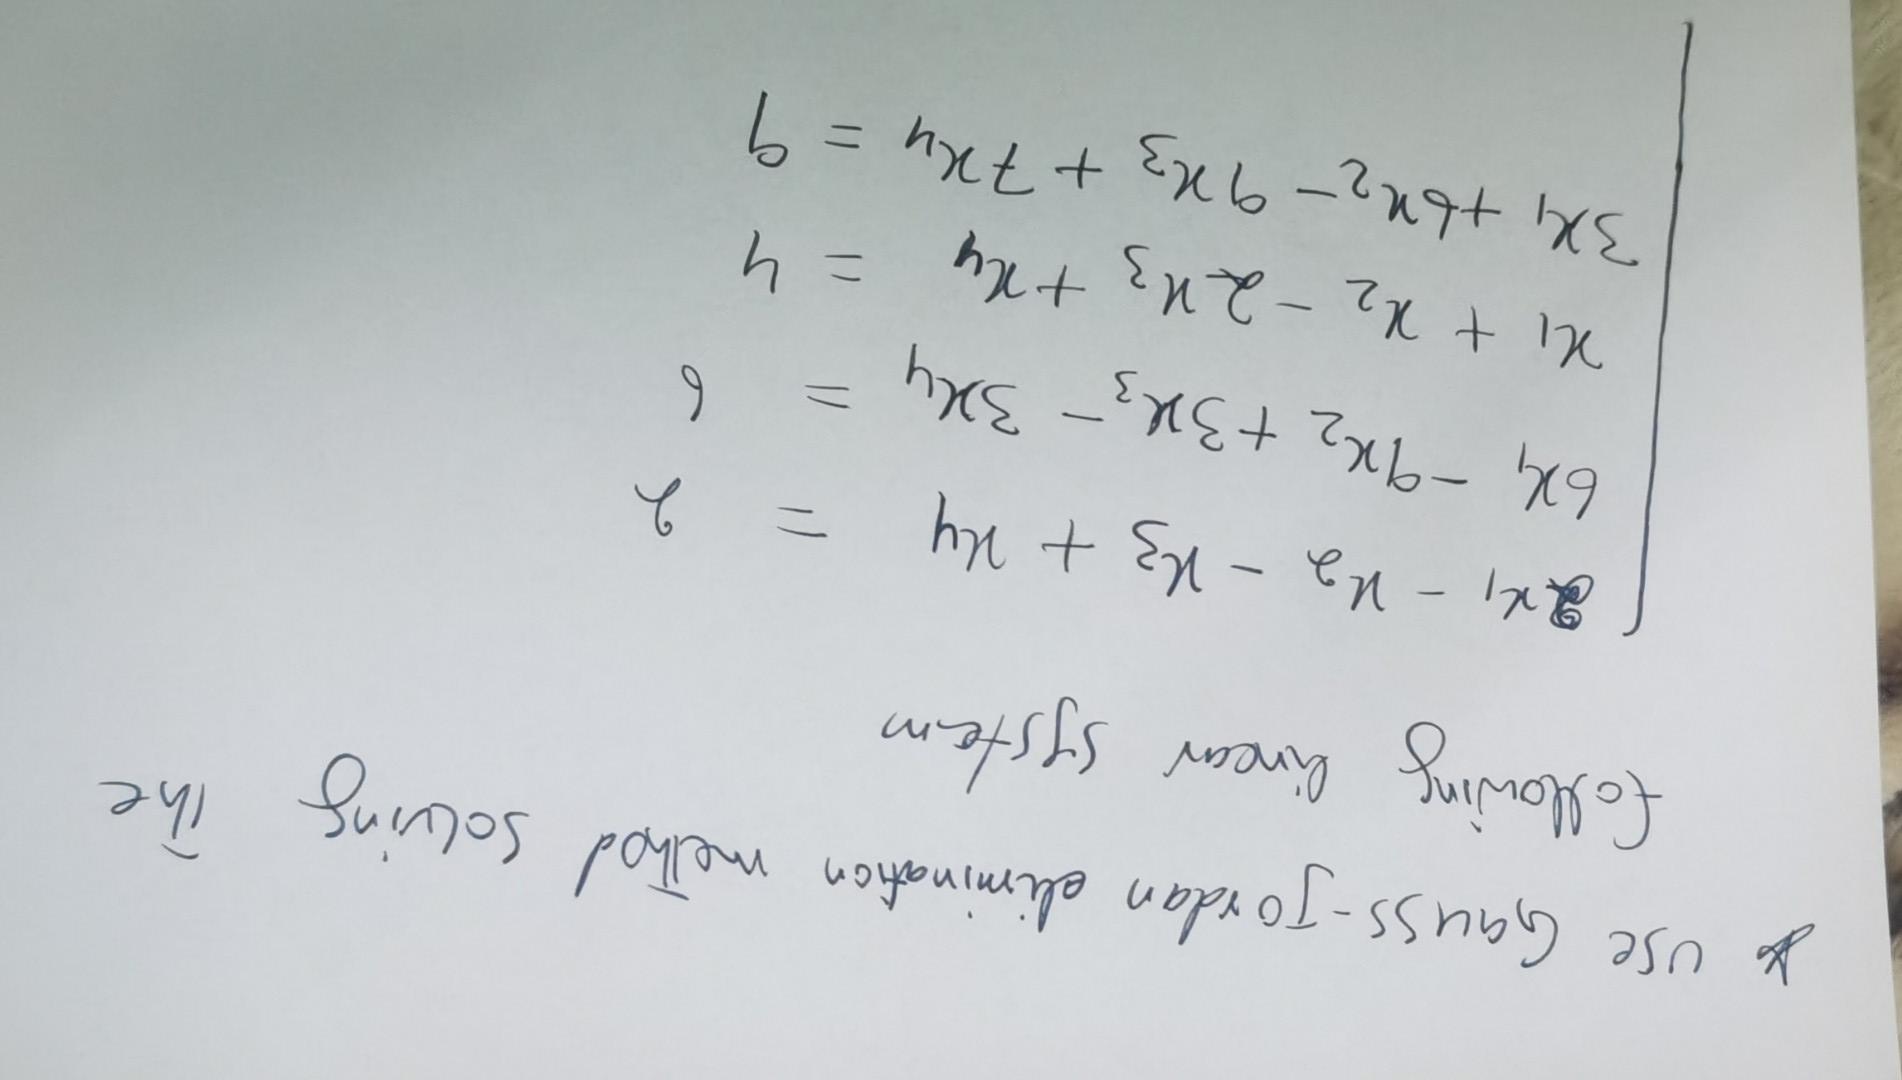 * use Gauss-Jordan elimination method solving the
following linear system
2x₁ - x₂ - x₃ + x₄ = 2
6x₁ - 9x₂ + 3x₃ - 3x₄ = 6
x₁ + x₂ - 2x₃ + x₄ = 4
3x₁ + 6x₂ - 9x₃ + 7x₄ = 9